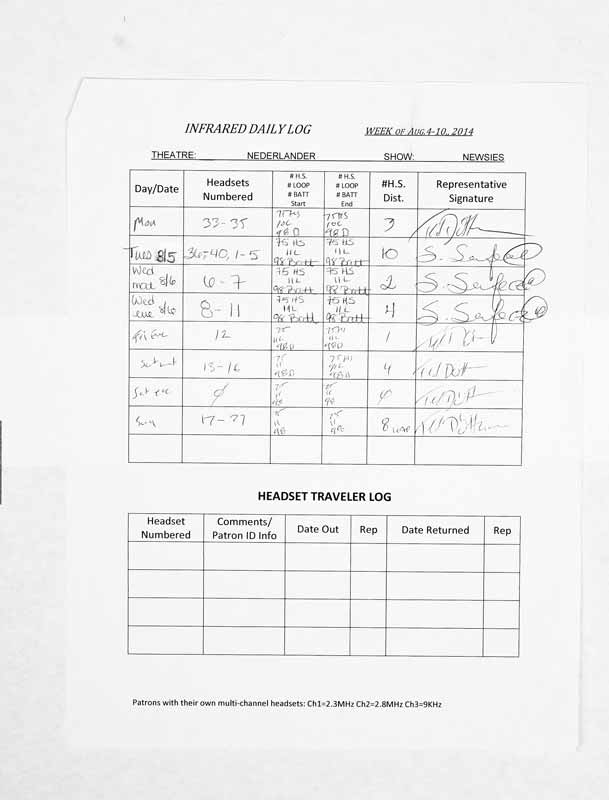 INFRARED DAILY LOG WEEK OF AUG.4-10, 2014
THEATRE: NEDERLANDER SHOW: NEWSIES
Day/Date Headsets Numbered # H.S. # LOOP # BATT Start # H.S. # LOOP # BATT End #H.S. Dist. Representative Signature
Mon 33-35 75 HS 98 D 75 HS 98 D 3
Tues 8/5 36-40, 1-5 75 HS 11L 98 Batt 75 HS 11L 98 Batt 10
Wed mat 8/6 6-7 75 HS 11L 98 Batt 75 HS 11L 98 Batt 2
Wed eve 8/6 8-11 75 HS 11L 98 Batt 75 HS 11L 98 Batt 4
Fri Eve 12 75 11L 98D 75 HS 11L 98D 1
Sat mat 13-16 75 11 98D 75 HS 98D 4
Sat eve 75 11 98 75 11 98
Sun 75 11 98 75 11 98 8
HEADSET TRAVELER LOG
Headset Numbered Comments/ Patron ID Info Date Out Rep Date Returned Rep
Patrons with their own multi-channel headsets: Ch1=2.3MHz Ch2=2.8MHz Ch3=9KHz